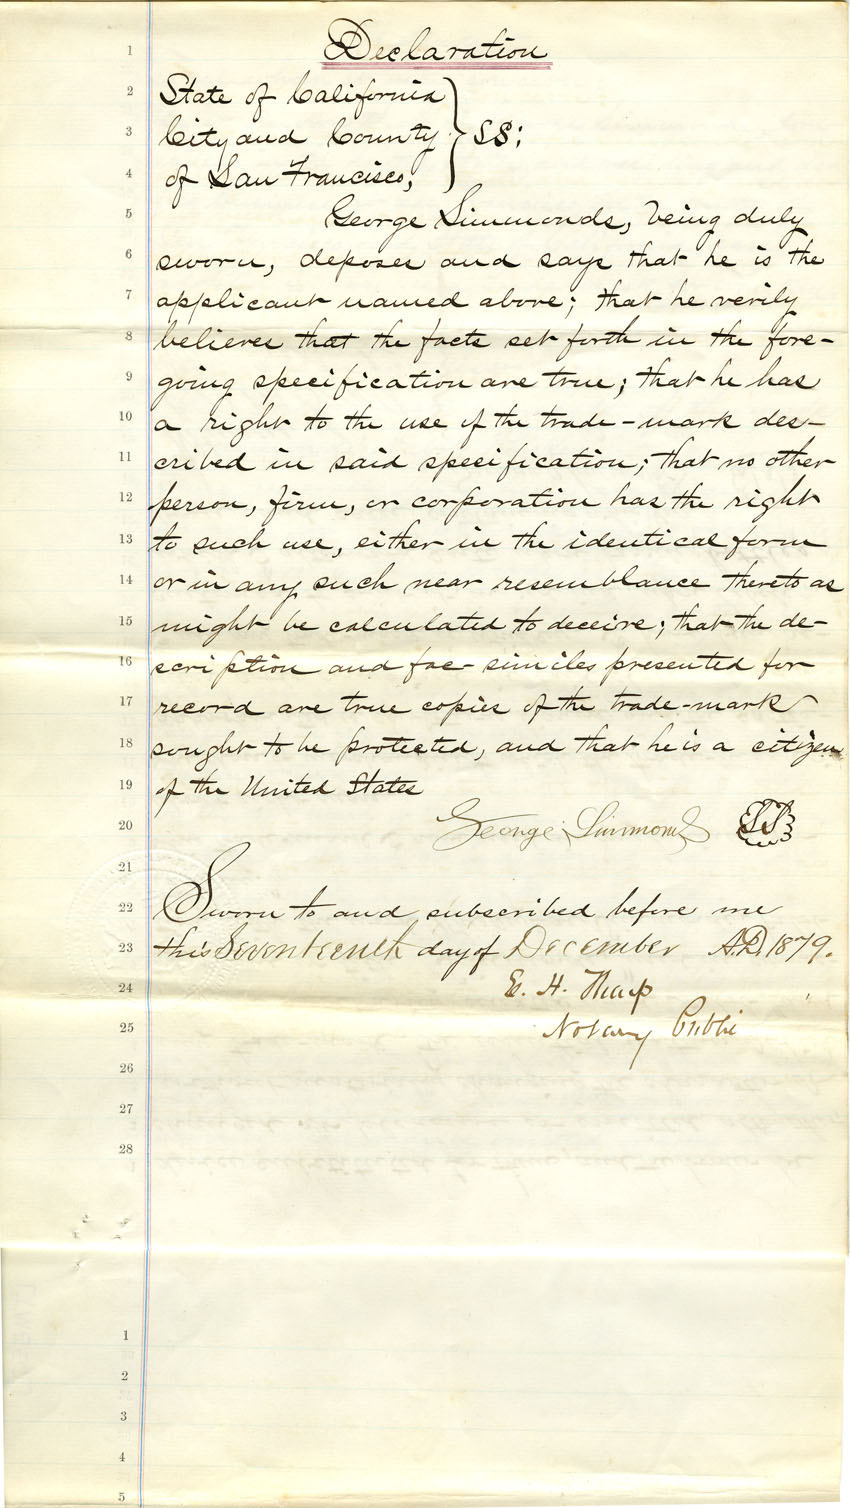 1 Declaration
2 State of California
3 City and County } SS:
4 of San Francisco,
5 George Simmonds, being duly
6 sworn, deposes and says that he is the
7 applicant named above; that he verily
8 believes that the facts set forth in the fore-
9 going specification are true; that he has
10 a right to the use of the trade-mark des-
11 cribed in said specification; that no other
12 person, firm, or corporation has the right
13 to such use, either in the identical form
14 or in any such near resemblance thereto as
15 might be calculated to deceive; that the de-
16 scription and fac-similes presented for
17 record are true copies of the trade-mark
18 sought to be protected, and that he is a citizen
19 of the United States
20 George Simmonds
21
22 Sworn to and subscribed before me
23 this Seventeenth day of December A.D. 1879.
24 E. H. Tharp
25 Notary Public
26
27
28
1
2
3
4
5